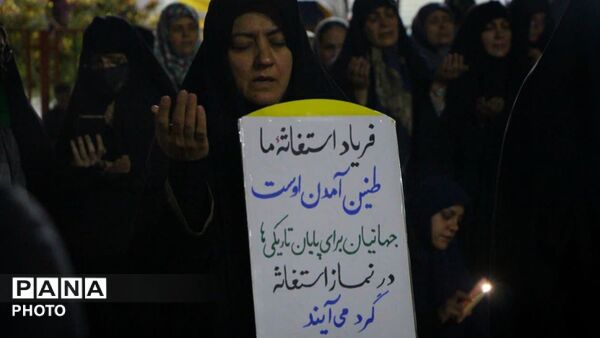 فریاد استغاثهٔ ما
طنین آمدن اوست
جهانیان برای پایان تاریکی‌ها
در نماز استغاثه
گرد می‌آیند
PANA
PHOTO